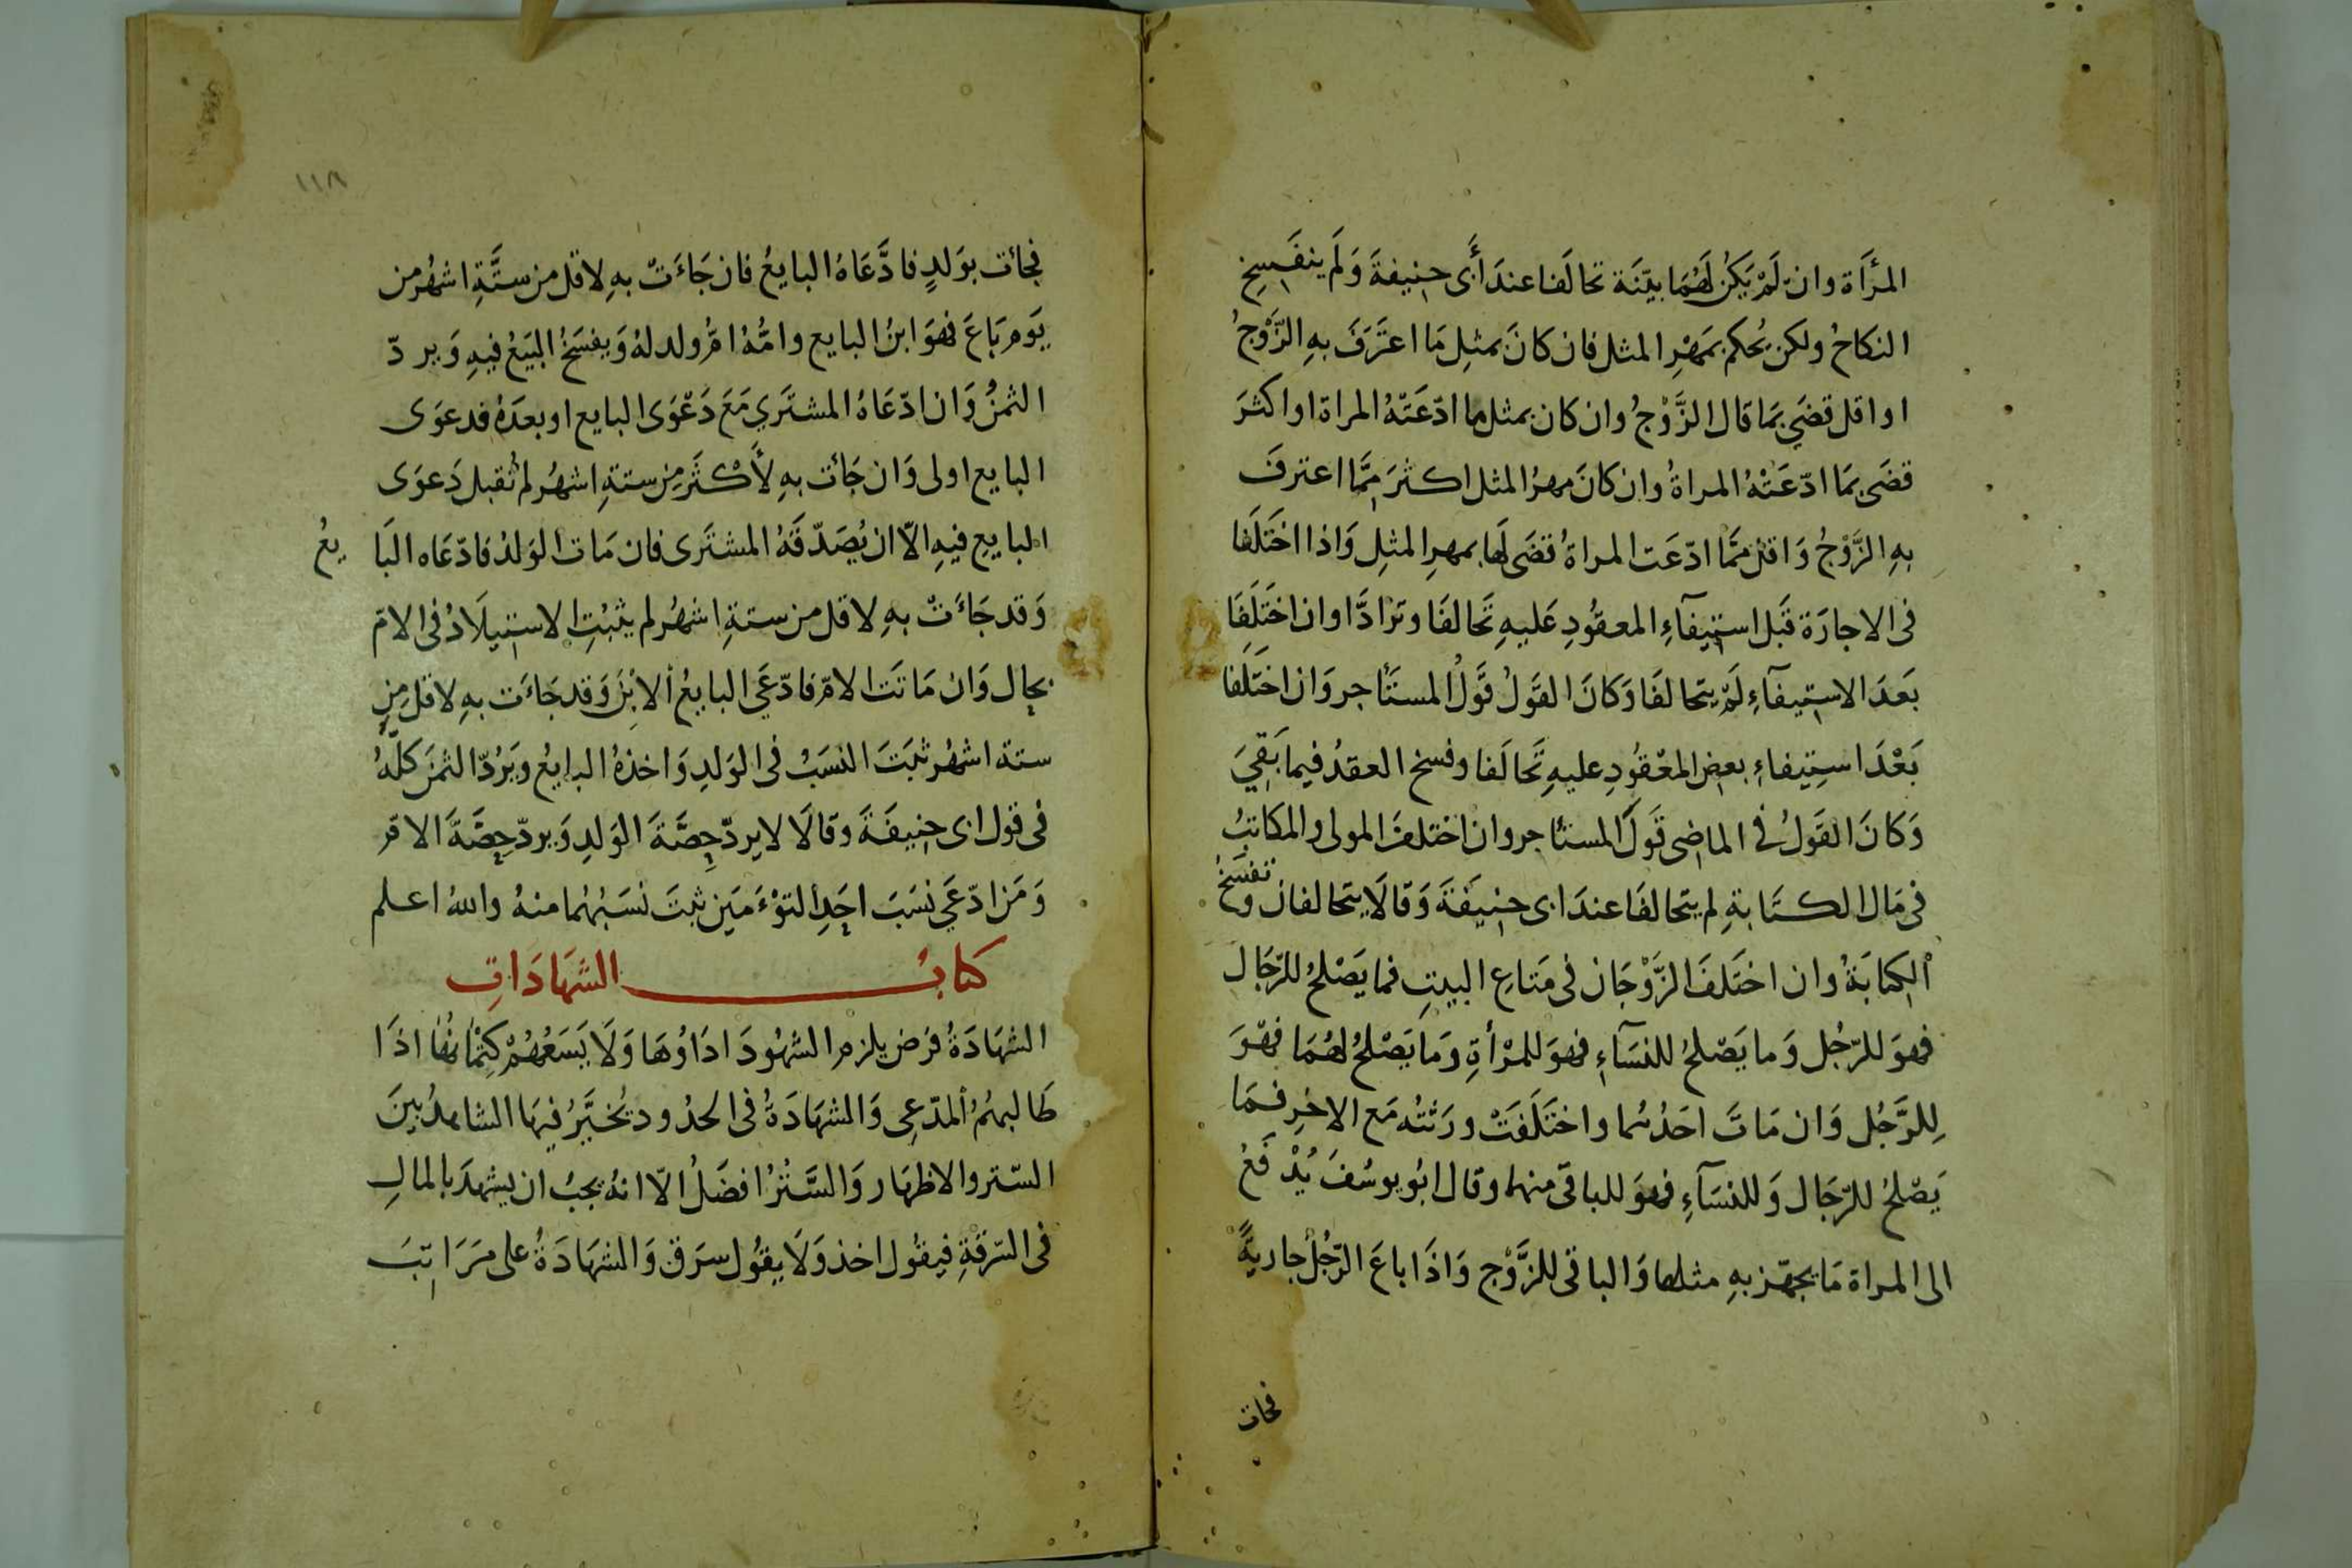 المرأة وان لَمْ يَكُن لَهُمَا بيّنَة تحالَفا عندَ أَبى حنِيفةَ وَلَم ينفَسِخ
النكاحُ ولكن يُحكم بمَهْرِ المثل فان كانَ بمثلِ مَا اعتَرَفَ بهِ الزَّوْجُ
او اقل قضَي بمَا قال الزَّوْجُ وان كان بمثل ما ادّعَتْهُ المراة او اكثرَ
قضَى بمَا ادّعَتْهُ المراةُ وان كانَ مهرُ المثل اكثرَ مِمَّا اعترفَ
بهِ الزَّوْجُ وَاقلّ ممَّا ادّعَت المراةُ قضَى لَها بمهرِ المثلِ وَاذا اختَلَفا
فى الاجارَة قَبل استِيفآءِ المعقُودِ عَليهِ تَحالفَا وترَادَّا وان اختَلِفَا
بَعدَ الاستِيفآءِ لَمْ يتحالفَا وَكانَ القوَلُ قَولُ المستَأجر وَان اختَلِفا
بَعْدَ استِيفاءِ بعض المعْقُودِ عليهِ تَحالَفا وفسخ العقدُ فيما بَقِيَ
وَكانَ القَولُ في الماضِى قَولَ المستأجر وان اختلفَ المولى والمكاتبُ
فى مَال الكتَابةِ لم يتحالفَا عندَ ابى حنِيفَةَ وَقالَا يتحالفان وتفسَخُ
الكِتابَةُ وان اختَلفَ الزَّوْجَان فى مَتاعِ البيتِ فما يَصْلحُ للرّجَال
فهوَ للرّجُل وَما يَصْلحُ للنسَآءِ فهوَ للمرْأةِ وَما يَصْلحُ لهُمَا فهّوَ
لِلرَّجُل وَان مَاتَ احَدُهُما واختَلَفَتْ ورَثتُه مَع الاخرِ فمَا
يَصْلحُ للرّجَال وَللنسَآءِ فهوَ للباقي منهما وقال ابُو يوسُفَ يُدْفَعُ
الى المراة مَا يجهّز بهِ مثلها وَالباقى للزَّوْج وَاذَا باعَ الرّجُلُ جاريةً
فجات
١١٨
فجائت بوَلدٍ فادَّعَاهُ البايعُ فان جَاءَتْ بهِ لاقل من ستَّةِ اشهُر من
يَوم بَاعَ فهوَ ابنُ البايع وامُّهُ امُّ ولد لهُ وَيفسَخُ البَيعُ فيهِ وَيردّ
الثمنُ وَان ادّعَاهُ المشتَرِي مَعَ دَعْوَى البايع او بعدَهُ فدعوَى
البايع اولى وَان جَائت بهِ لأَكْثرَ مِن ستةِ اشهُر لم تُقبل دَعوَى
البايعِ فيهِ الّا ان يُصَدّقَهُ المشتَرى فان مَات الوَلدُ فادّعَاه البَا يعُ
وَقد جَاءَتْ بهِ لاقل من ستةِ اشهُر لم يثبُتِ الاستِيلَادُ فى الامّ
بحال وَان مَاتَت الامّ فادّعَي البايعُ الابْنَ وَقد جَاءَت بهِ لاقل مِن
ستة اشهُر ثبَتَ النسَبُ فى الوَلدِ وَاخذهُ البايعُ ويَرُدّ الثمنَ كلّهُ
فى قول ابى حنِيفَةَ وقالَا لا يردّ حِصَّةَ الوَلدِ وَيردّ حِصَّةَ الام
وَمَن ادّعَي نسَبَ احَدِ التوْءَمَين ثبتَ نسَبُهُما منهُ واللهُ اعلم
كتابُ الشهَادَاتِ
الشهَادَةُ فرَض يلزم الشهُودَ ادَاوُهَا وَلَا يَسَعُهُمْ كِتْمَانُهَا اذَا
طَالبهُمُ المدّعِى وَالشهَادَةُ فى الحدُود يُخيَّرُ فيهَا الشاهدُ بينَ
السّتر والاظهَار وَالسَّتْرُ افضَلُ الّا انهُ يجبُ ان يشهدَ بالمالِ
فى السّرقةِ فيقُول اخذ وَلَا يقُول سرَق وَالشهَادَةُ على مَرَاتبَ